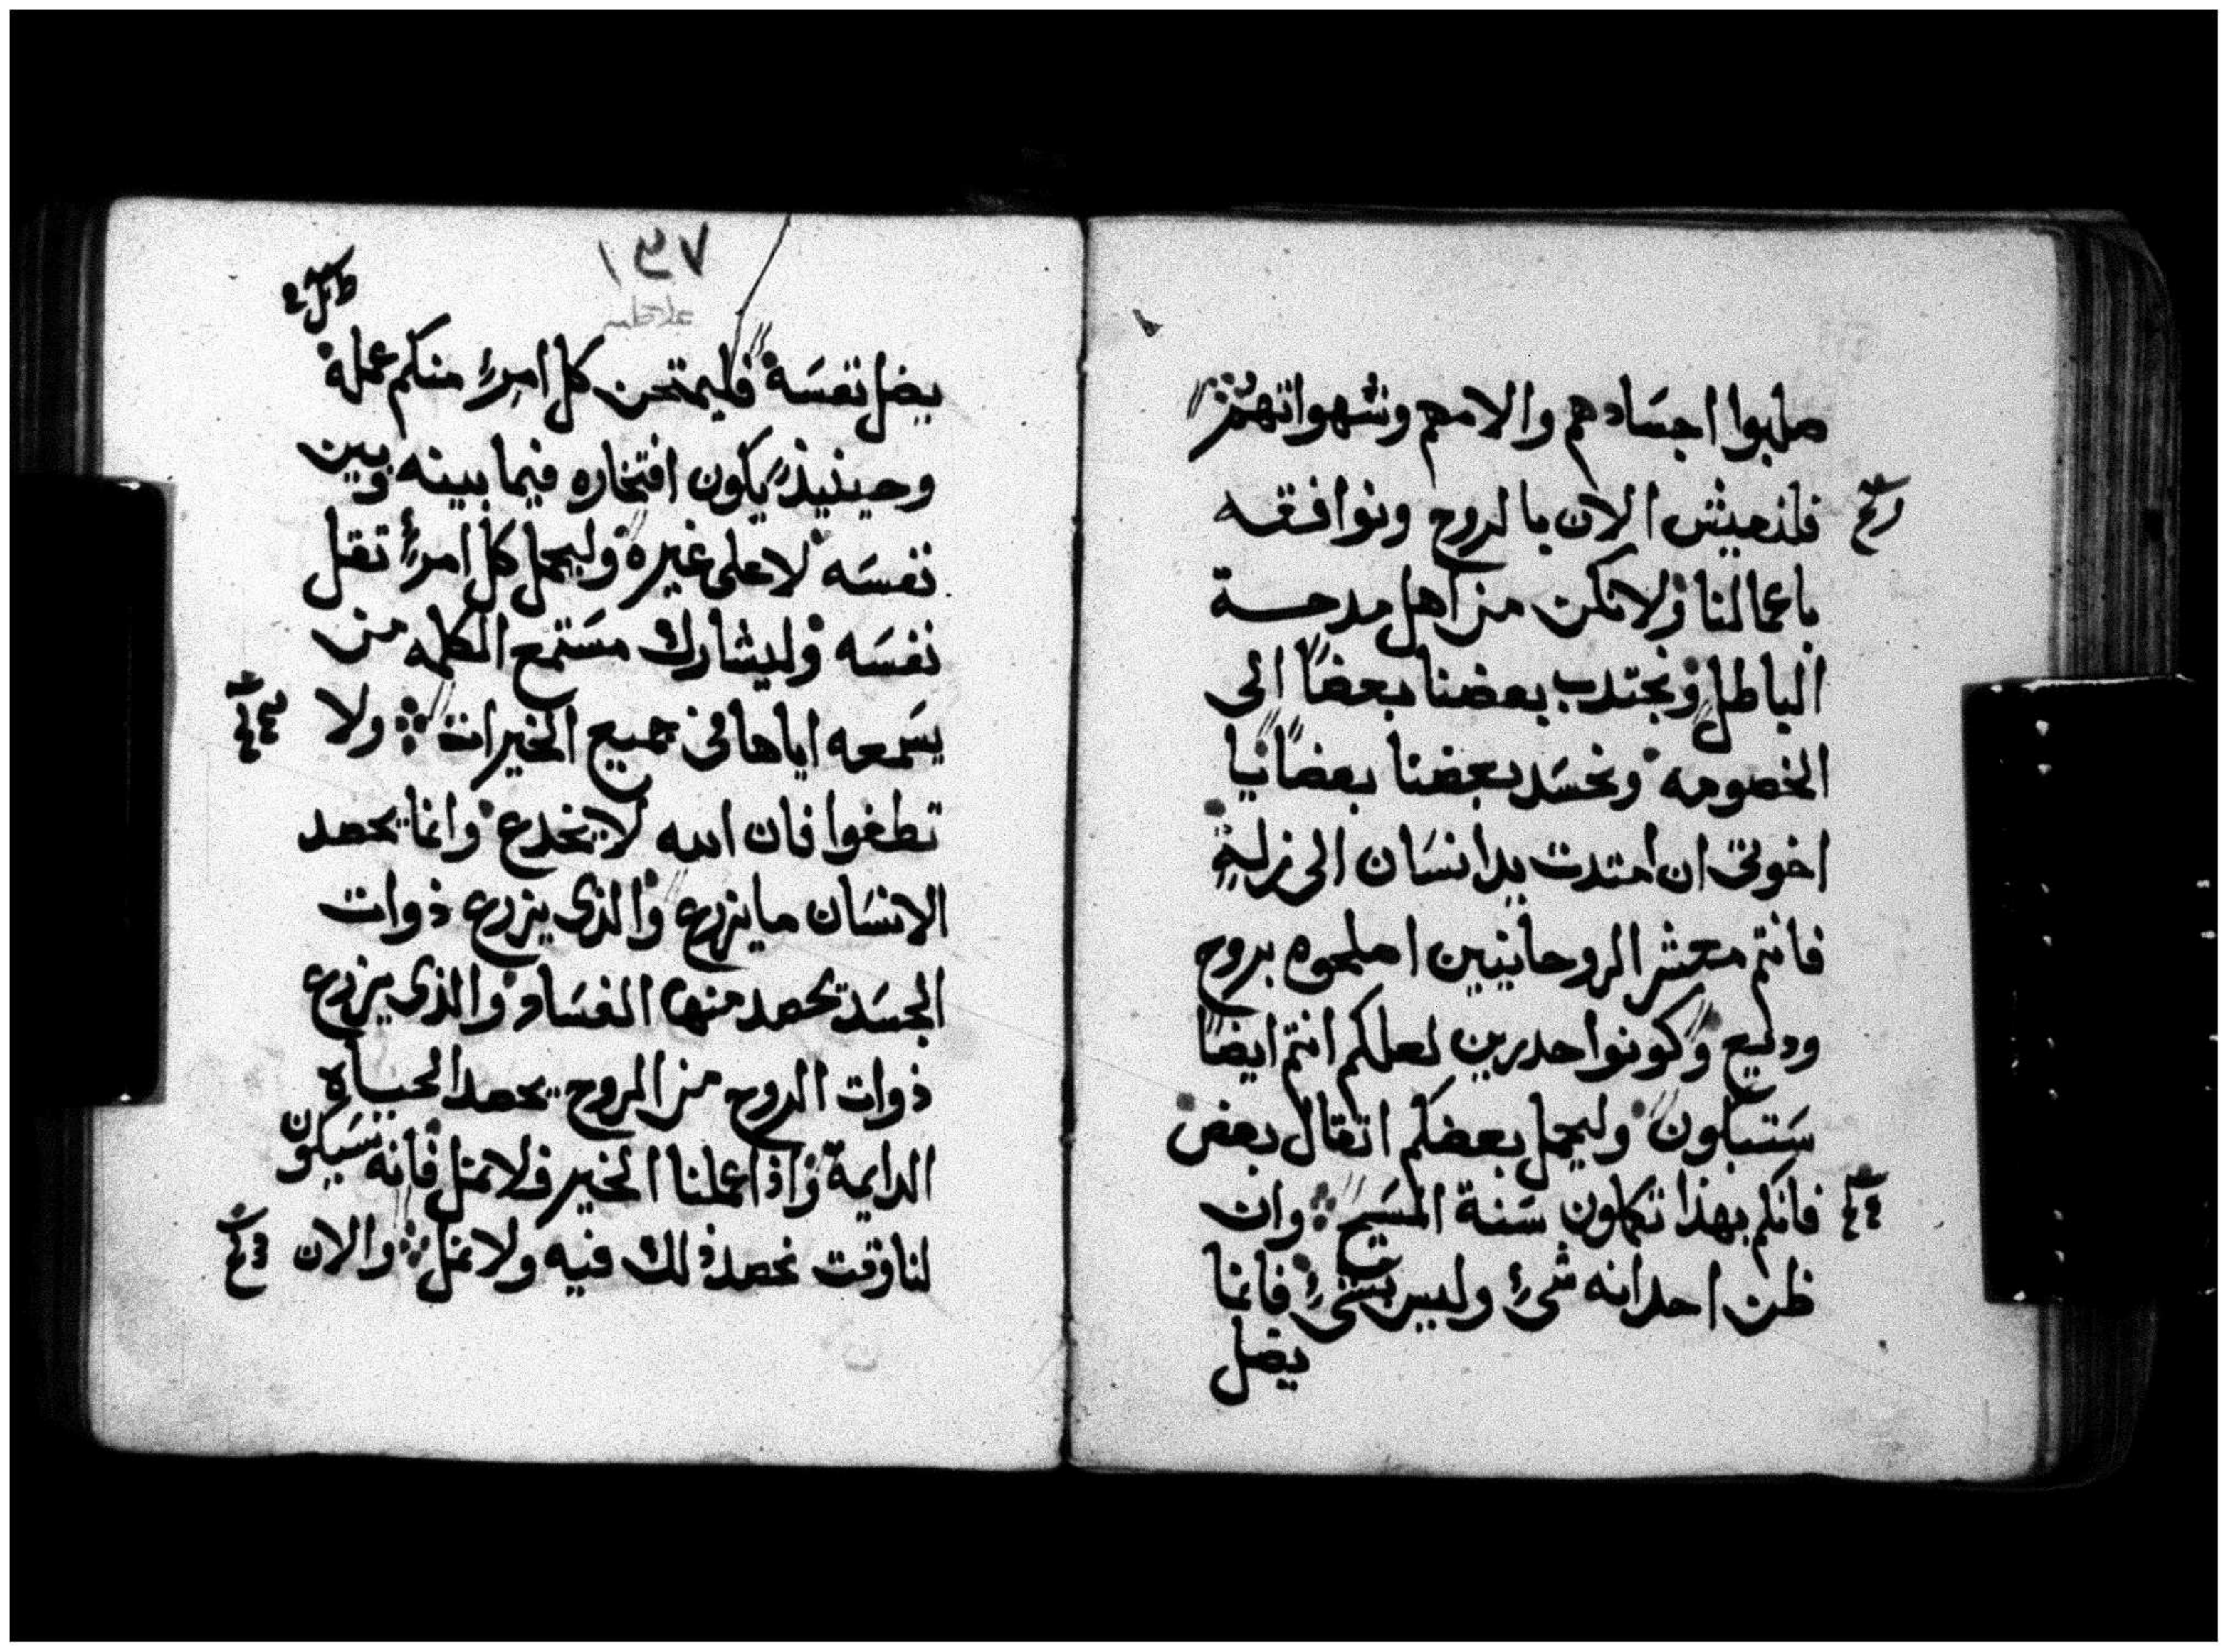 صلبوا اجسادهم والامهم وشهواتهم
فلنعيش الان بالروح ونوافقه
باعمالنا ولا نكن من اهل مدحة
الباطل ونجتدب بعضنا بعضاً الى
الخصومه ونحسد بعضنا بعضاً يا
اخوتى ان امتدت يد انسان الى زلة
فانتم معشر الروحانيين اصلحوه بروح
وديع وكونوا حدرين لعلكم انتم ايضاً
ستبلون وليحمل بعضكم اتقال بعض
فانكم بهذا تكملون سنة المسيح وان
ظن احد انه شئ وليس بشئ فانما
يضل
١٤٧
يضل نفسه فليمتحن كل امرء منكم عمله
وحينيذ يكون افتخاره فيما بينه وبين
نفسه لا على غيره وليحمل كل امرء تقل
نفسه وليشارك مستمع الكلمه من
يسمعه اياها فى جميع الخيرات ولا
تطغوا فان الله لا يخدع وانما يحصد
الانسان ما يزرع والذى يزرع ذوات
الجسد يحصد منها الفساد والذى يزرع
ذوات الروح من الروح يحصد الحياه
الدايمة واذا عملنا الخير فلا نمل فانه سيكون
لنا وقت نحصد ذلك فيه ولا نمل والان